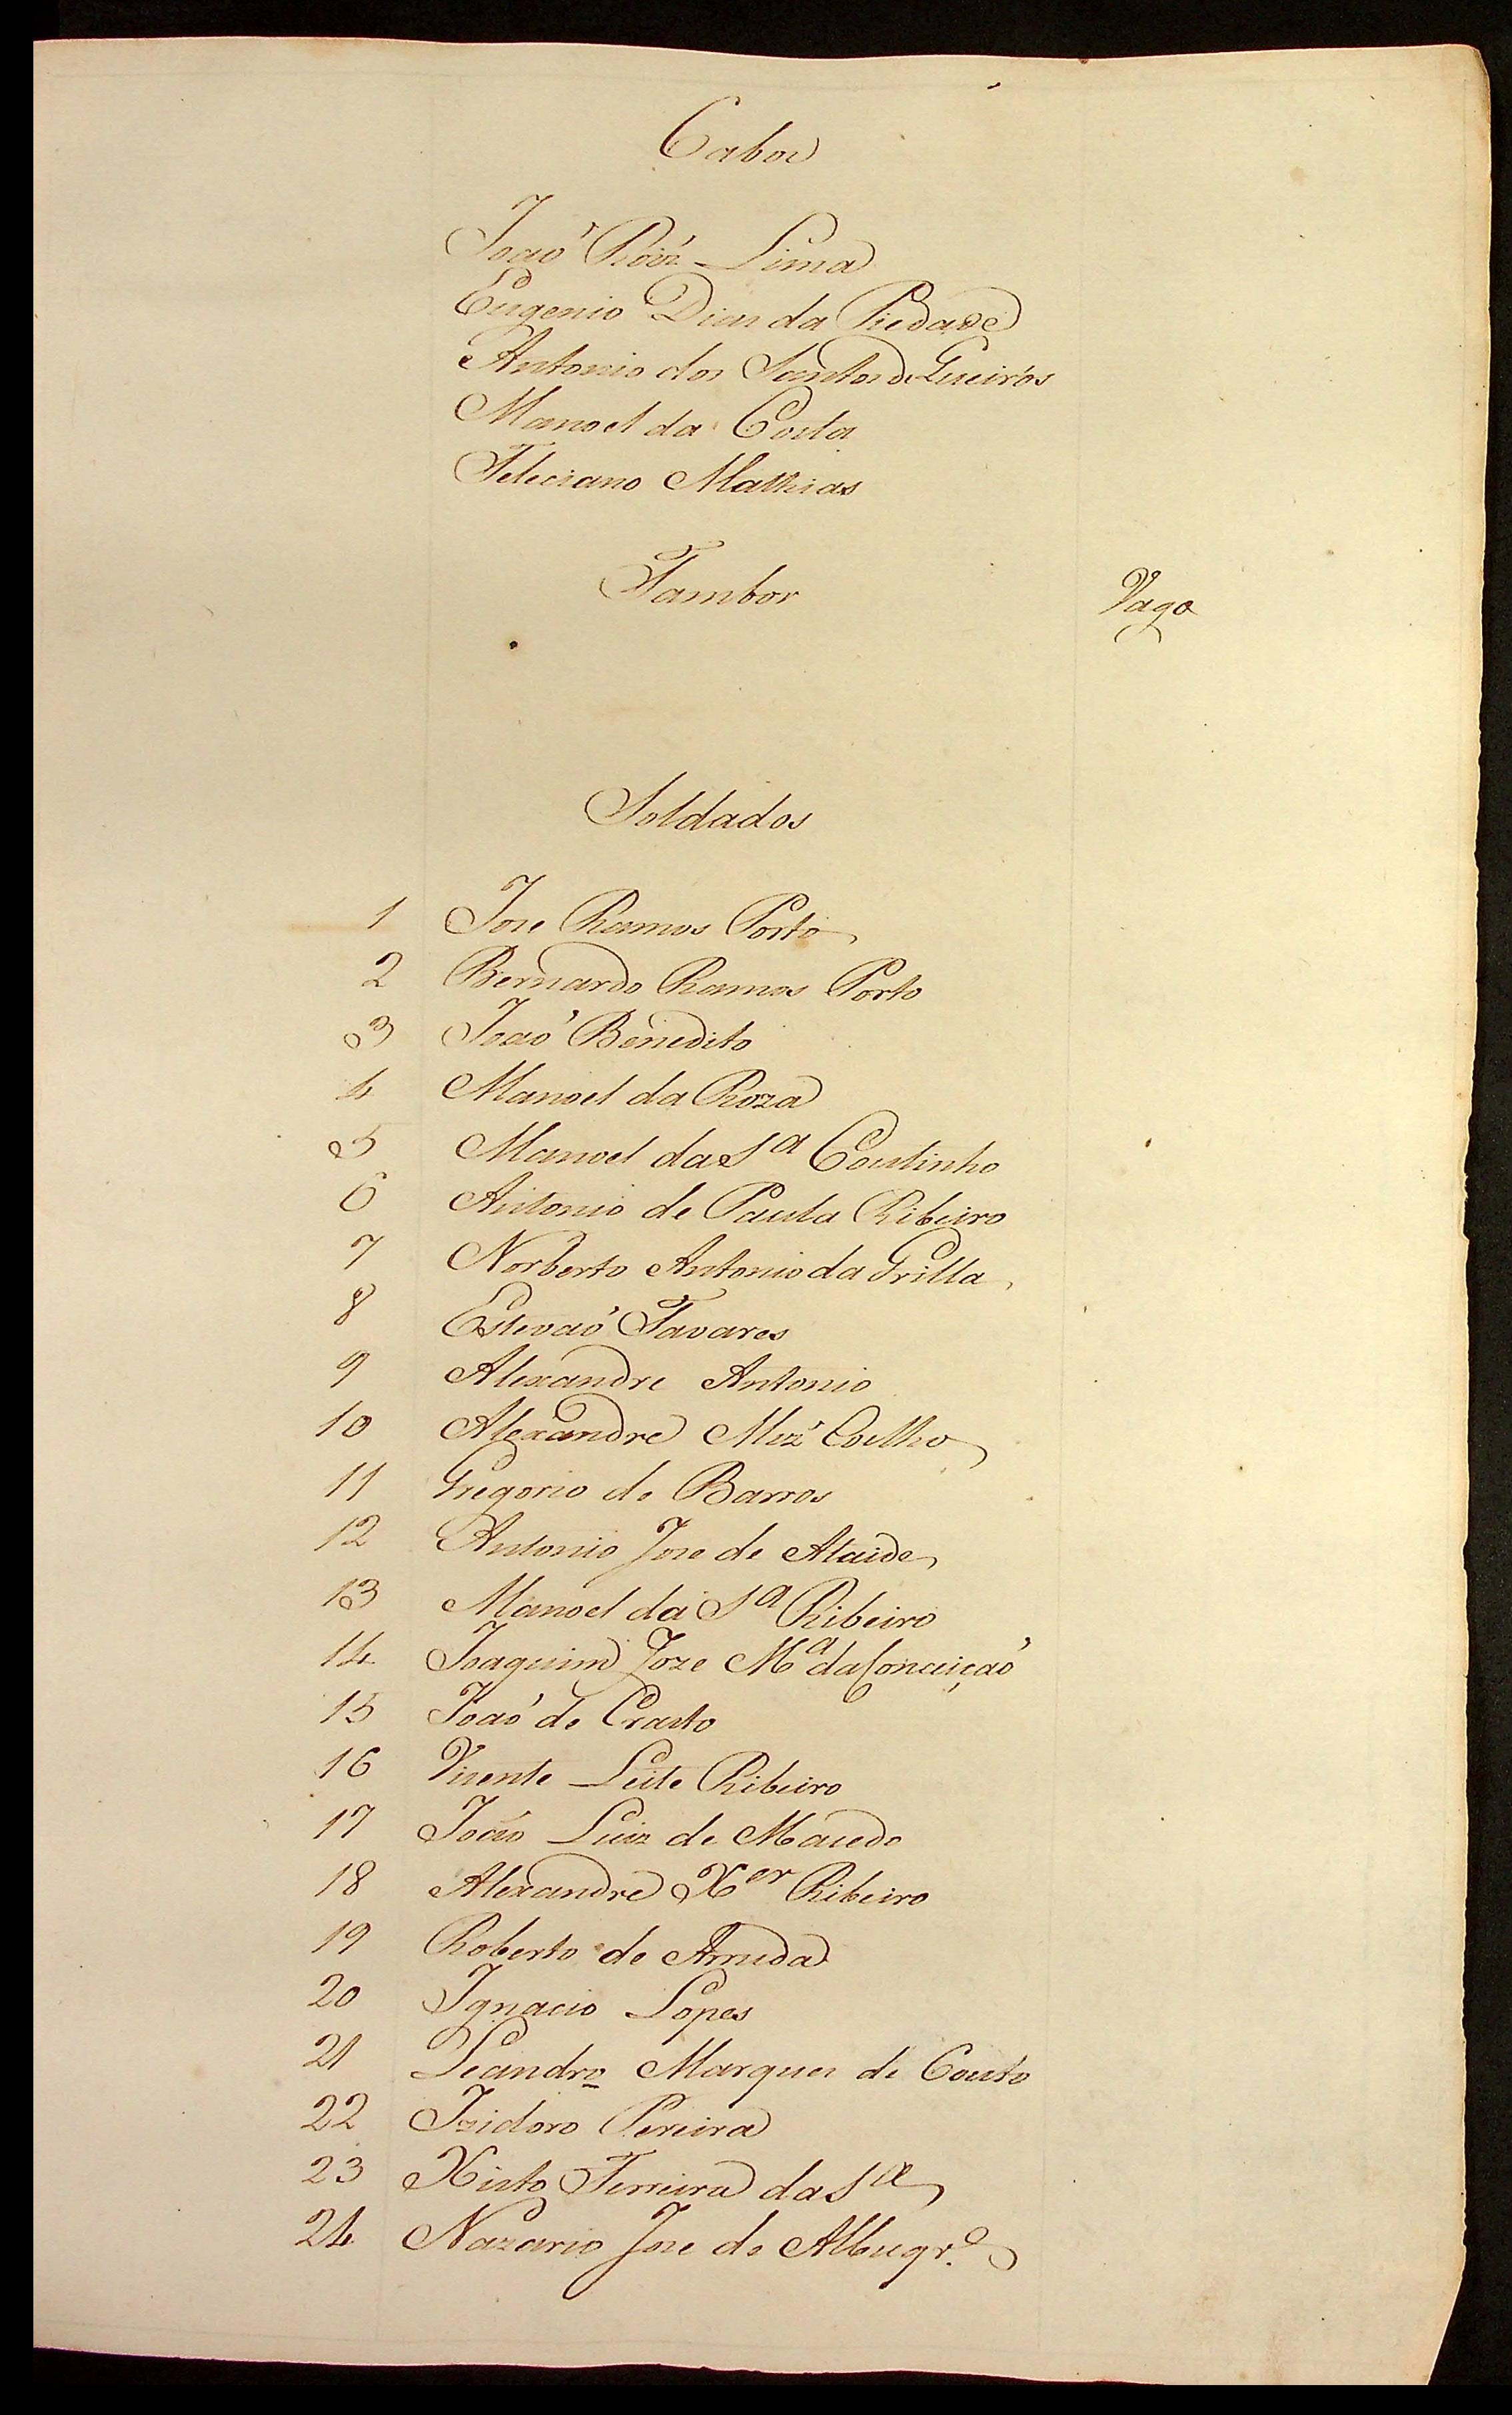 Cabos
João Roiz Lima
Eugenio Dias da Piedade
Antonio dos Santos de Queirós
Manoel da Costa
Feleciano Mathias
Tambor Vago
Soldados
1 Jose Ramos Porto
2 Bernardo Ramos Porto
3 João Benedito
4 Manoel da Roza
5 Manoel da Sª Coutinho
6 Antonio de Paula Ribeiro
7 Norberto Antonio da Grilla
8 Estevaõ Tavares
9 Alexandre Antonio
10 Alexandre Miz Coelho
11 Gregorio de Barros
12 Antonio Jose de Ataide
13 Manoel da Sª Ribeiro
14 Joaquim Joze Mª da Conceição
15 Joaõ de Crasto
16 Vicente Leite Ribeiro
17 João Luiz de Macedo
18 Alexandre Xer Ribeiro
19 Roberto de Arruda
20 Ignacio Lopes
21 Leandro Marques de Couto
22 Izidoro Pereira
23 Xisto Ferreira da Sª
24 Nazario Jose de Albuqr.e